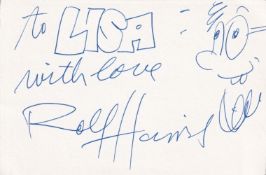 to LISA
with love
Rolf Harris